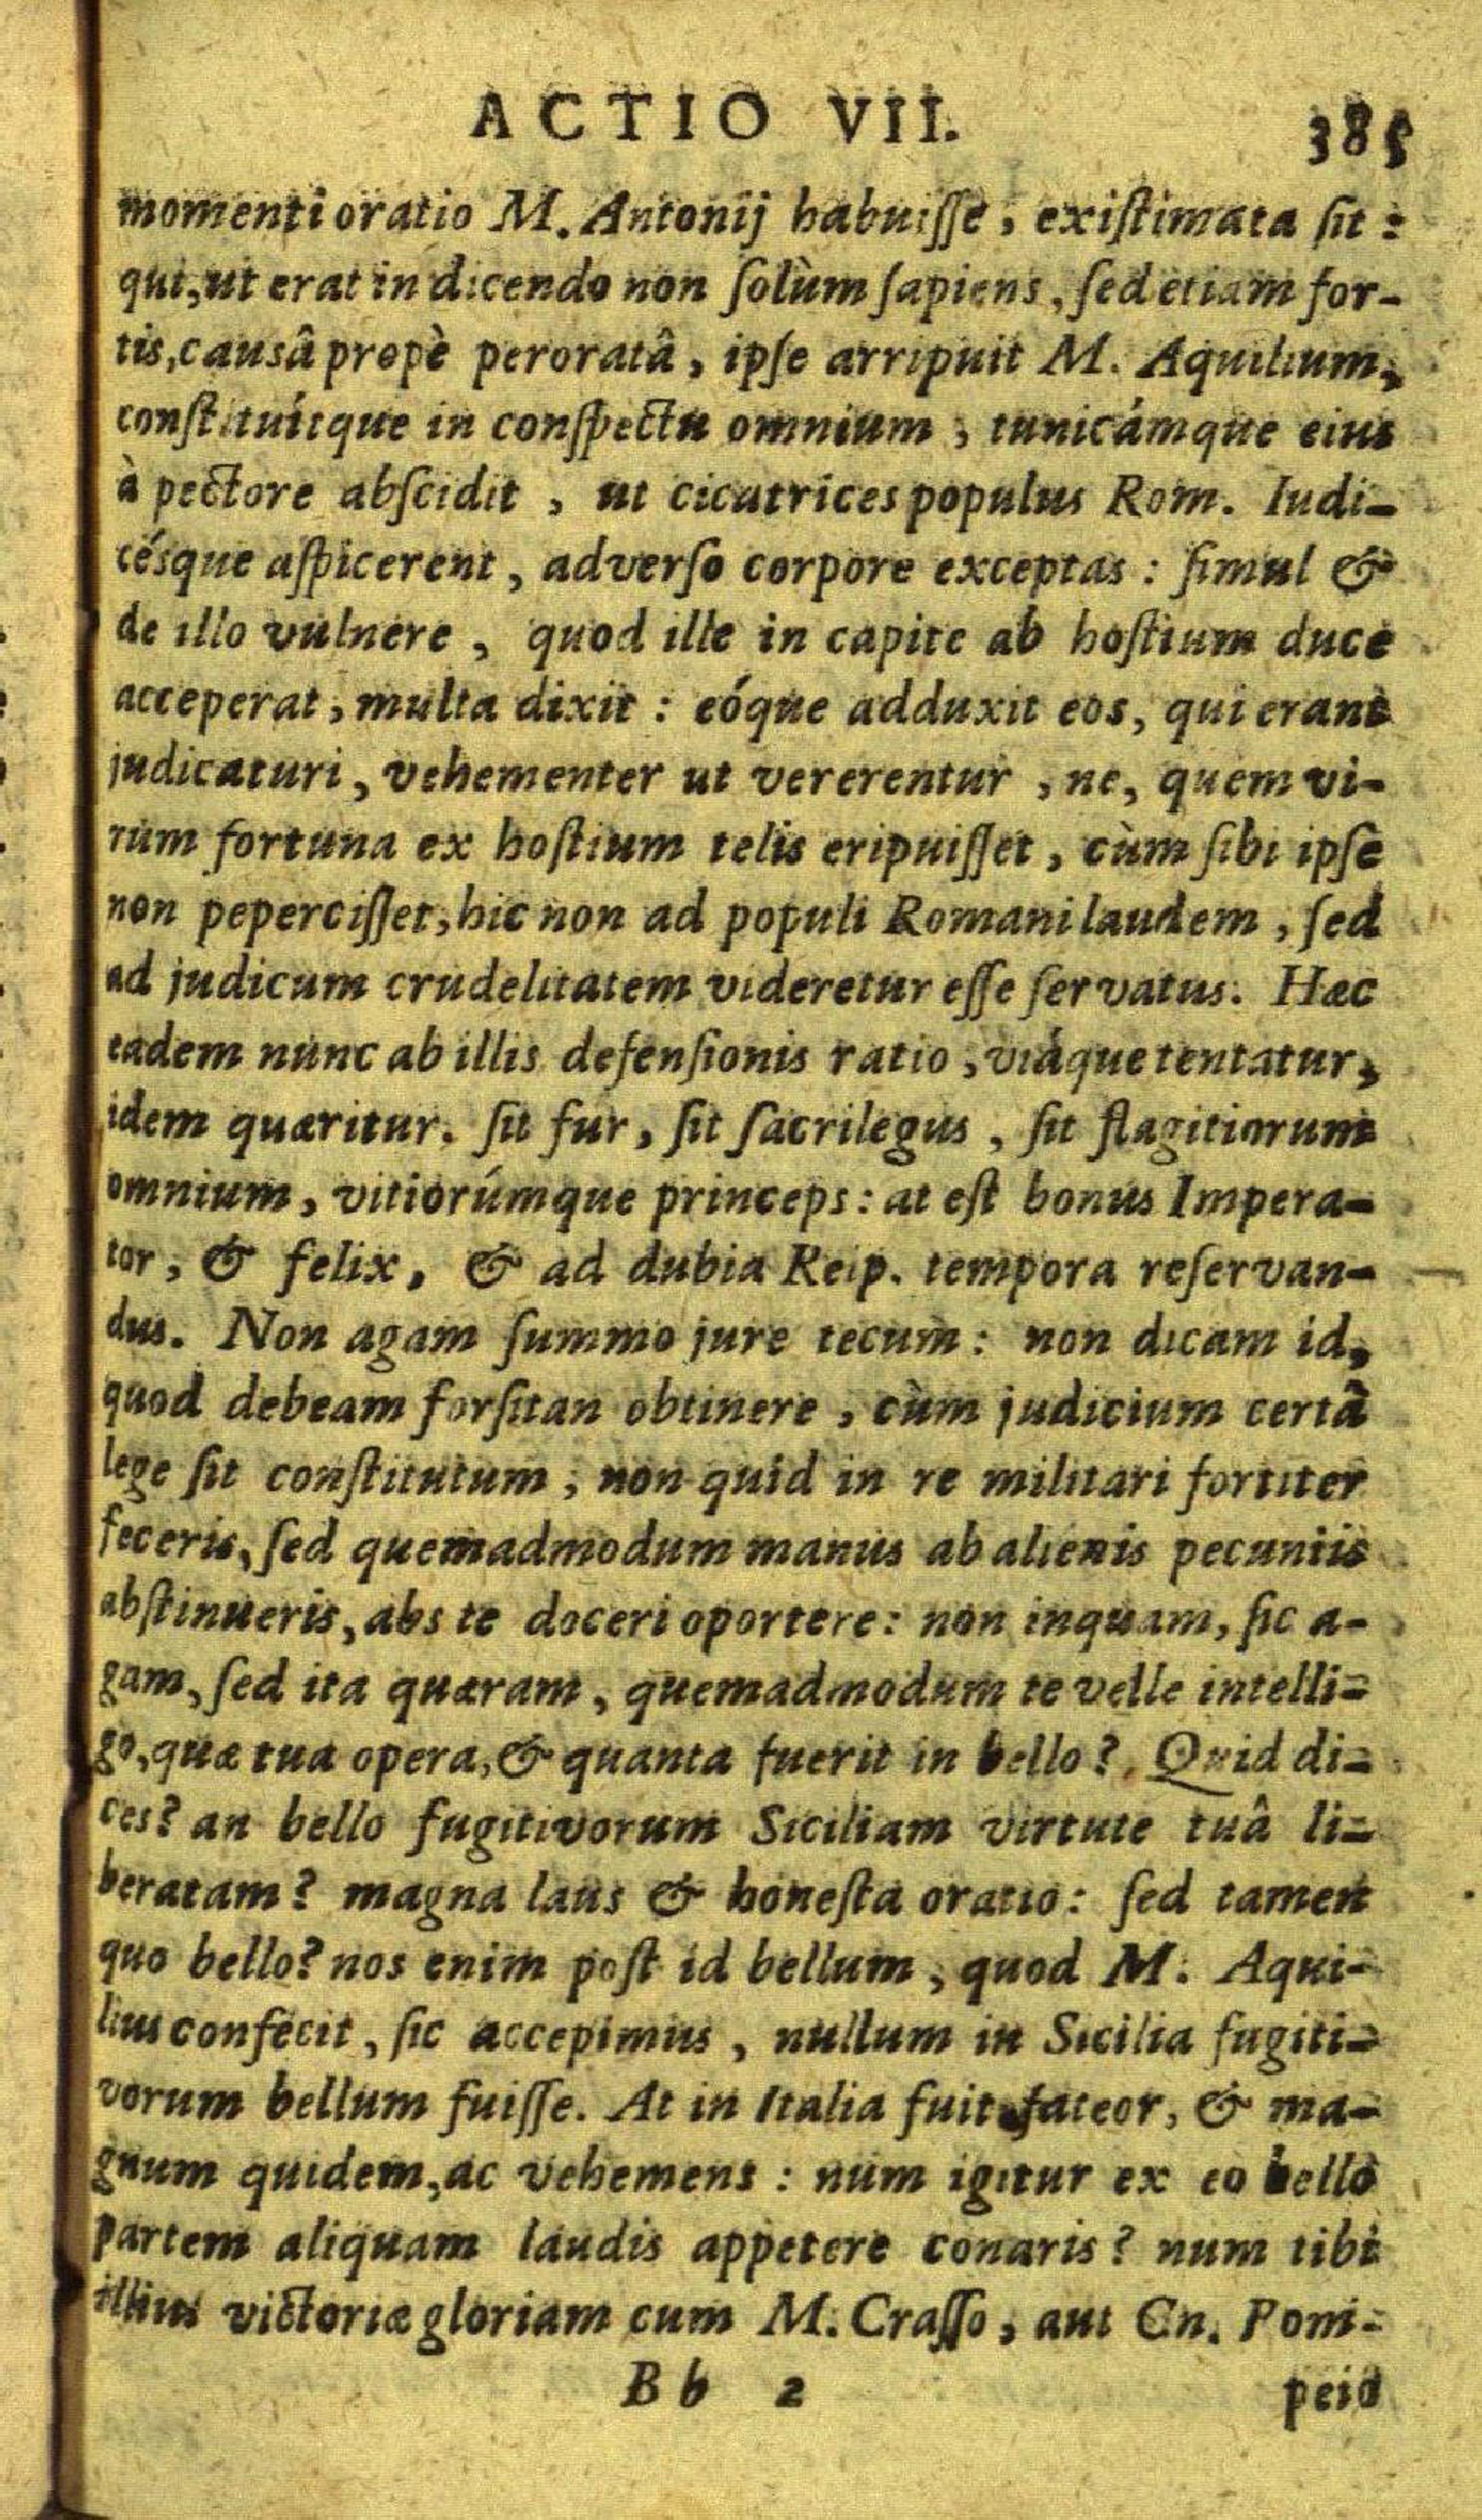 ACTIO VII. 385
momenti oratio M. Antonij habuiſſe, exiſtimata ſit:
qui, ut erat in dicendo non ſolùm ſapiens, ſed etiam for-
tis, causâ propè peroratâ, ipſe arripuit M. Aquilium,
conſtituítque in conſpectu omnium, tunicámque eius
à pectore abſcidit, ut cicatrices populus Rom. Iudi-
césque aſpicerent, adverſo corpore exceptas: ſimul &
de illo vulnere, quod ille in capite ab hoſtium duce
acceperat, multa dixit: eóque adduxit eos, qui erant
judicaturi, vehementer ut vererentur, ne, quem vi-
rum fortuna ex hoſtium telis eripuiſſet, cùm ſibi ipſe
non peperciſſet, hic non ad populi Romani laudem, ſed
ad judicum crudelitatem videretur eſſe ſervatus. Hæc
eadem nunc ab illis defenſionis ratio, viáque tentatur,
idem quæritur. ſit fur, ſit ſacrilegus, ſit flagitiorum
omnium, vitiorúmque princeps: at eſt bonus Impera-
tor, & felix, & ad dubia Reip. tempora reſervan-
dus. Non agam ſummo jure tecum: non dicam id,
quod debeam forſitan obtinere, cùm judicium certâ
lege ſit conſtitutum, non quid in re militari fortiter
feceris, ſed quemadmodum manus ab alienis pecuniis
abſtinueris, abs te doceri oportere: non inquam, ſic a-
gam, ſed ita quæram, quemadmodum te velle intelli-
go, quæ tua opera, & quanta fuerit in bello? Quid di-
ces? an bello fugitivorum Siciliam virtute tuâ li-
beratam? magna laus & honeſta oratio: ſed tamen
quo bello? nos enim poſt id bellum, quod M. Aqui-
lius confecit, ſic accepimus, nullum in Sicilia fugiti-
vorum bellum fuiſſe. At in Italia fuit, fateor, & ma-
gnum quidem, ac vehemens: num igitur ex eo bello
partem aliquam laudis appetere conaris? num tibi
illius victoriæ gloriam cum M. Craſſo, aut Cn. Pom-
Bb 2 peio